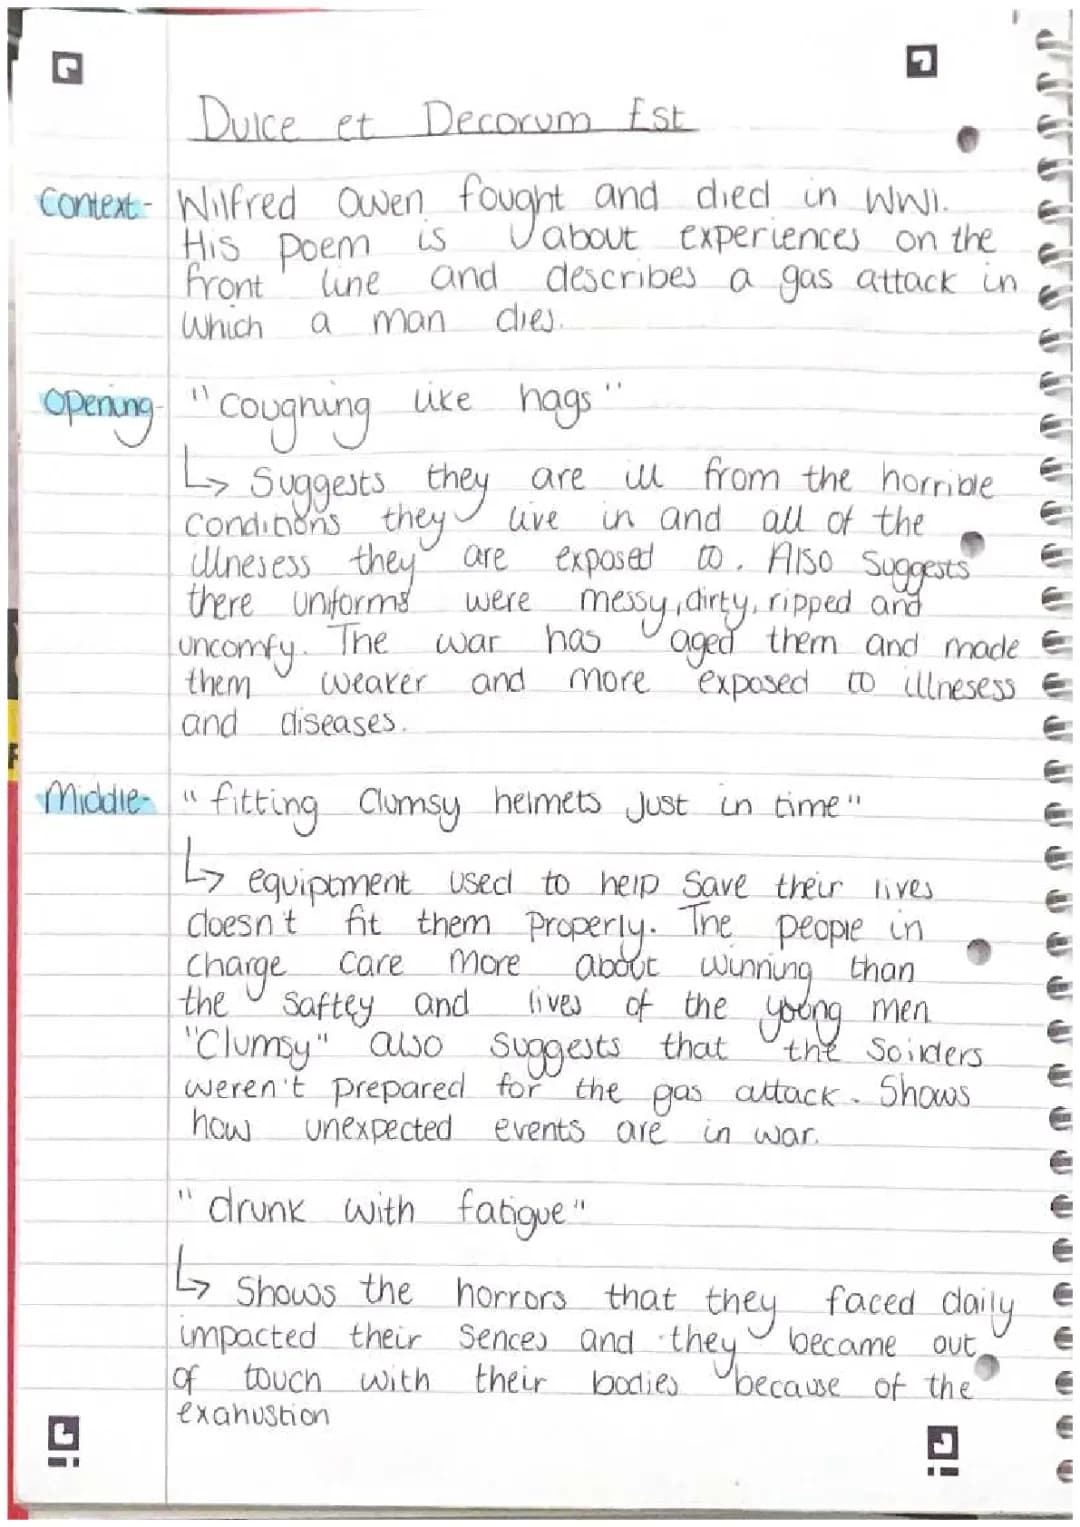 Dulce et Decorum Est
Context - Wilfred Owen fought and died in WW1.
His poem is about experiences on the
front line and describes a gas attack in
which a man dies.
Opening - "coughing like hags"
↳ Suggests they are ill from the horrible
conditions they live in and all of the
illnesess they are exposed to. Also suggests
there uniforms were messy, dirty, ripped and
uncomfy. The war has aged them and made
them weaker and more exposed to illnesess
and diseases.
Middle - "fitting clumsy helmets just in time"
↳ equiptment used to help save their lives
doesn't fit them properly. The people in
charge care more about winning than
the saftey and lives of the young men
"Clumsy" also suggests that the soilders
weren't prepared for the gas attack. Shows
how unexpected events are in war.
"drunk with fatigue"
↳ Shows the horrors that they faced daily
impacted their sences and they became out
of touch with their bodies because of the
exahustion